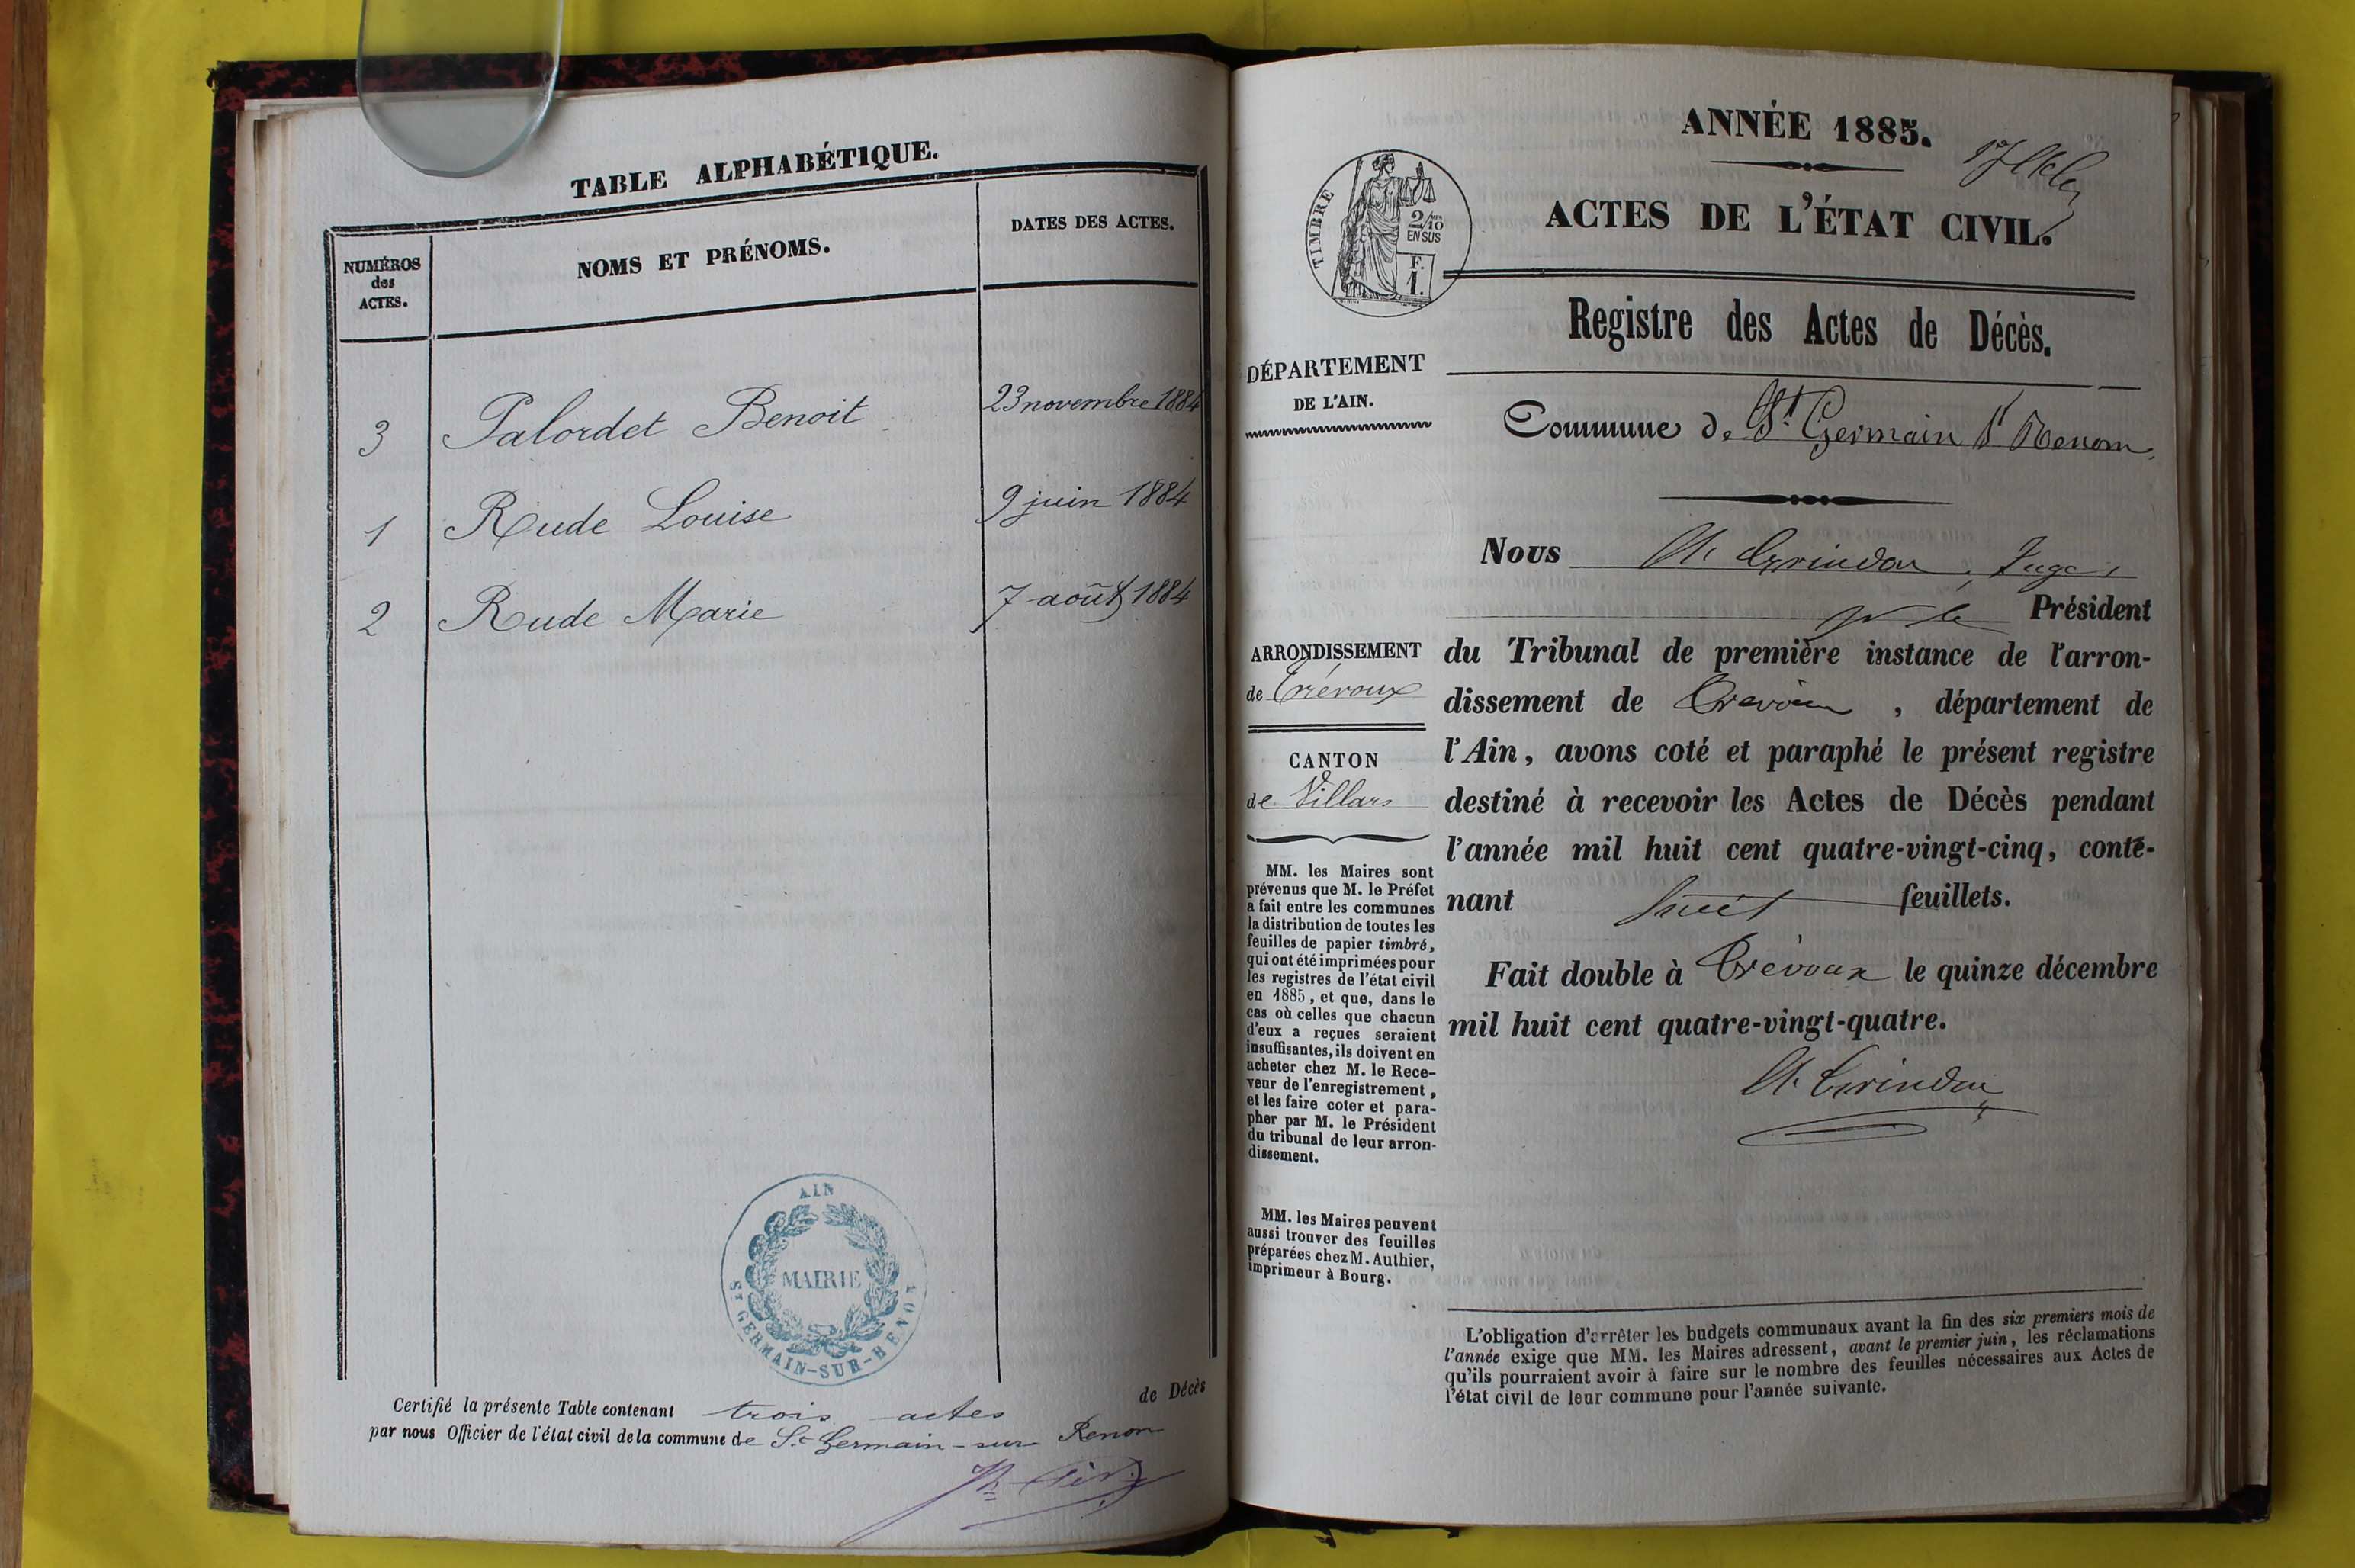 TABLE ALPHABÉTIQUE.
NUMÉROS
des
ACTES.
NOMS ET PRÉNOMS.
DATES DES ACTES.
3 Palordet Benoit 23 novembre 1884
1 Rude Louise 9 juin 1884
2 Rude Marie 7 août 1884
AIN
MAIRIE
ST GERMAIN-SUR-RENON
Certifié la présente Table contenant trois actes de Décès
par nous Officier de l'état civil de la commune de St Germain-sur Renon
ANNÉE 1885.
ACTES DE L'ÉTAT CIVIL.
TIMBRE
2/10
EN SUS
F.
1.
Registre des Actes de Décès.
DÉPARTEMENT
DE L'AIN.
Commune de St Germain Sr Renom
ARRONDISSEMENT
de Trévoux
CANTON
de Villars
MM. les Maires sont
prévenus que M. le Préfet
a fait entre les communes
la distribution de toutes les
feuilles de papier timbré,
qui ont été imprimées pour
les registres de l'état civil
en 1885, et que, dans le
cas où celles que chacun
d'eux a reçues seraient
insuffisantes, ils doivent en
acheter chez M. le Rece-
veur de l'enregistrement,
et les faire coter et para-
pher par M. le Président
du tribunal de leur arron-
dissement.
MM. les Maires peuvent
aussi trouver des feuilles
préparées chez M. Authier,
imprimeur à Bourg.
Nous Juge,
Président
du Tribunal de première instance de l'arron-
dissement de Trévoux, département de
l'Ain, avons coté et paraphé le présent registre
destiné à recevoir les Actes de Décès pendant
l'année mil huit cent quatre-vingt-cinq, conte-
nant huit feuillets.
Fait double à Trévoux le quinze décembre
mil huit cent quatre-vingt-quatre.
L'obligation d'arrêter les budgets communaux avant la fin des six premiers mois de
l'année exige que MM. les Maires adressent, avant le premier juin, les réclamations
qu'ils pourraient avoir à faire sur le nombre des feuilles nécessaires aux Actes de
l'état civil de leur commune pour l'année suivante.